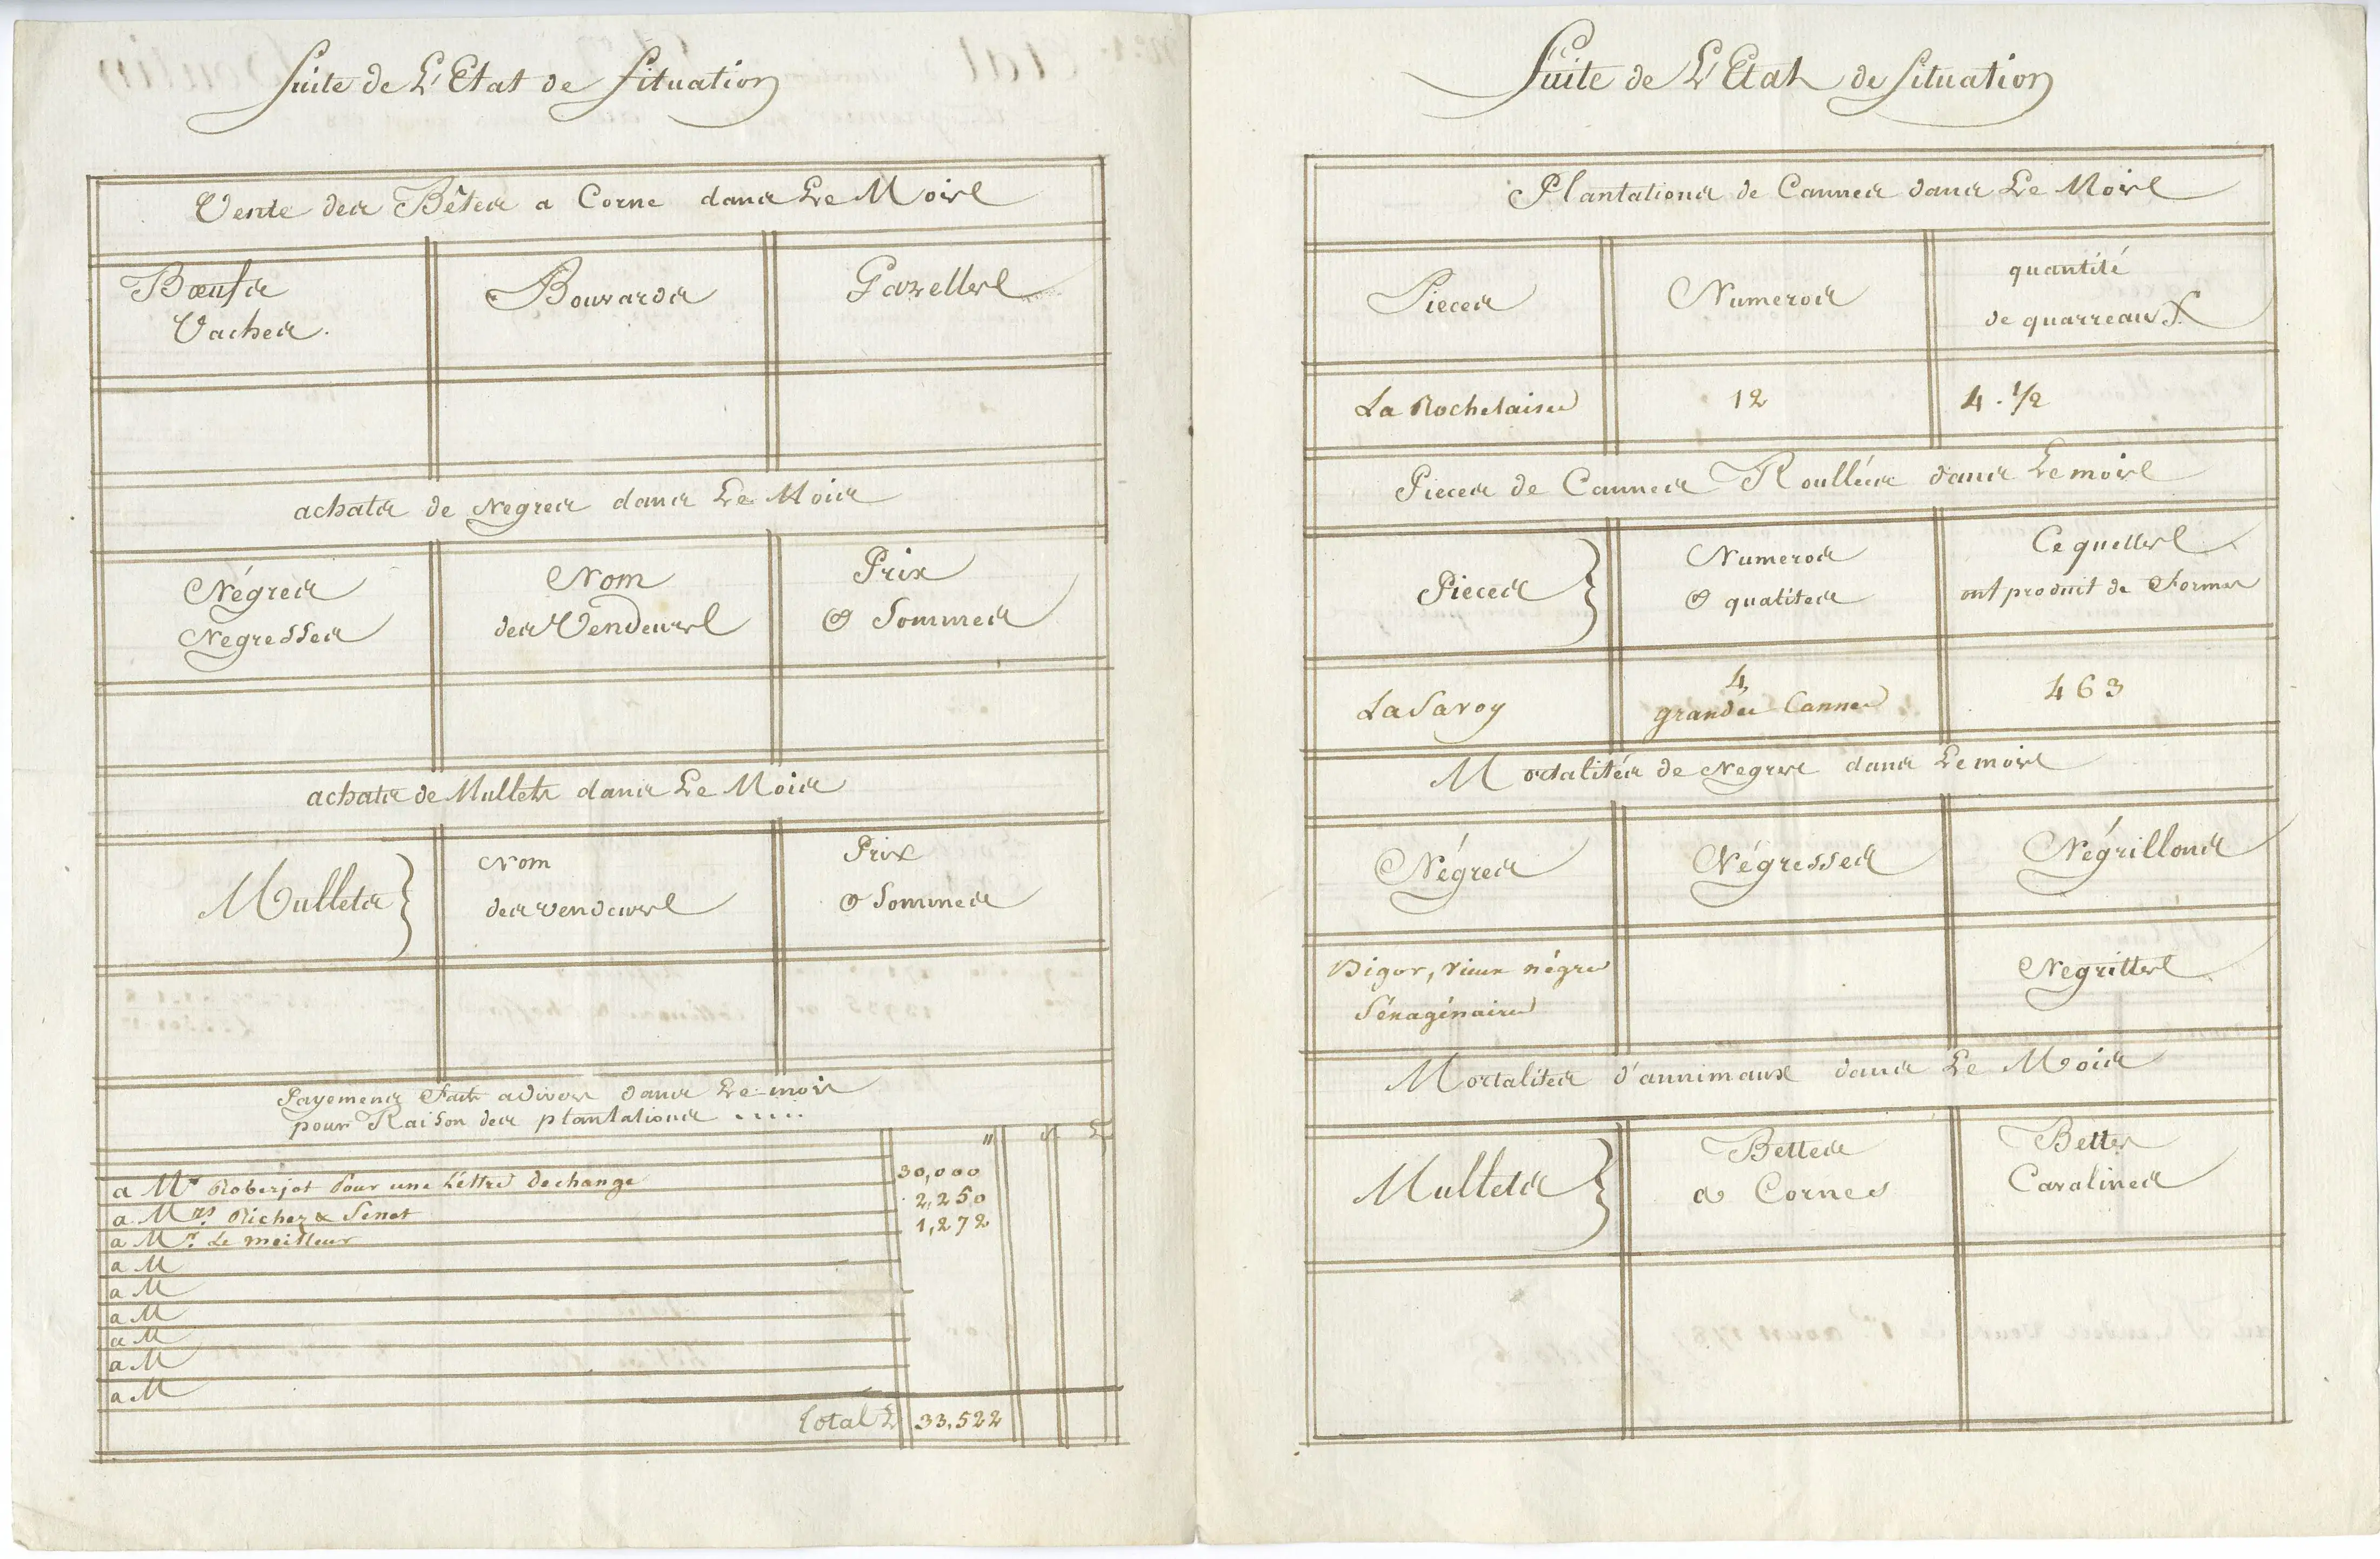 Suite de L'Etat de Situation
Vente des Bêtes a Corne dans Le Mois
Bœufs
Vaches.
Bouvards
Gazelles
achats de Negres dans Le Mois
Négres
Negresses
Nom
des Vendeurs
Prix
& Sommes
achats de Mullets dans Le Mois
Mullets }
Nom
des vendeurs
Prix
& Sommes
Payemens Faits a divers dans Le mois
pour Raison des plantations .....
a Mr Roberjot Pour une Léttre dechange 30,000
a Mrs. Richer & Senet 2,250
a Mr. Le meilleur 1,272
a M
a M
a M
a M
a M
a M
Total L 33,522
Suite de L'Etat de Situation
Plantations de Cannes dans Le Mois
Pieces
Numeros
quantité
de quarreaux
La Rochelaise 12 4. 1/2
Pieces de Cannes Roullées dans Le mois
Pieces }
Numeros
& qualites
Ce quelles
ont produit de Formes
La Savoy
4,
grandes Cannes
463
Mortalités de Negres dans Le mois
Négres
Négresses
Négrillons
Bigor, vieux négre
Séxagénaire
Negrittes
Mortalites d'annimaux dans Le Mois
Mullets }
Bettes
a Cornes
Bettes
Cavalines